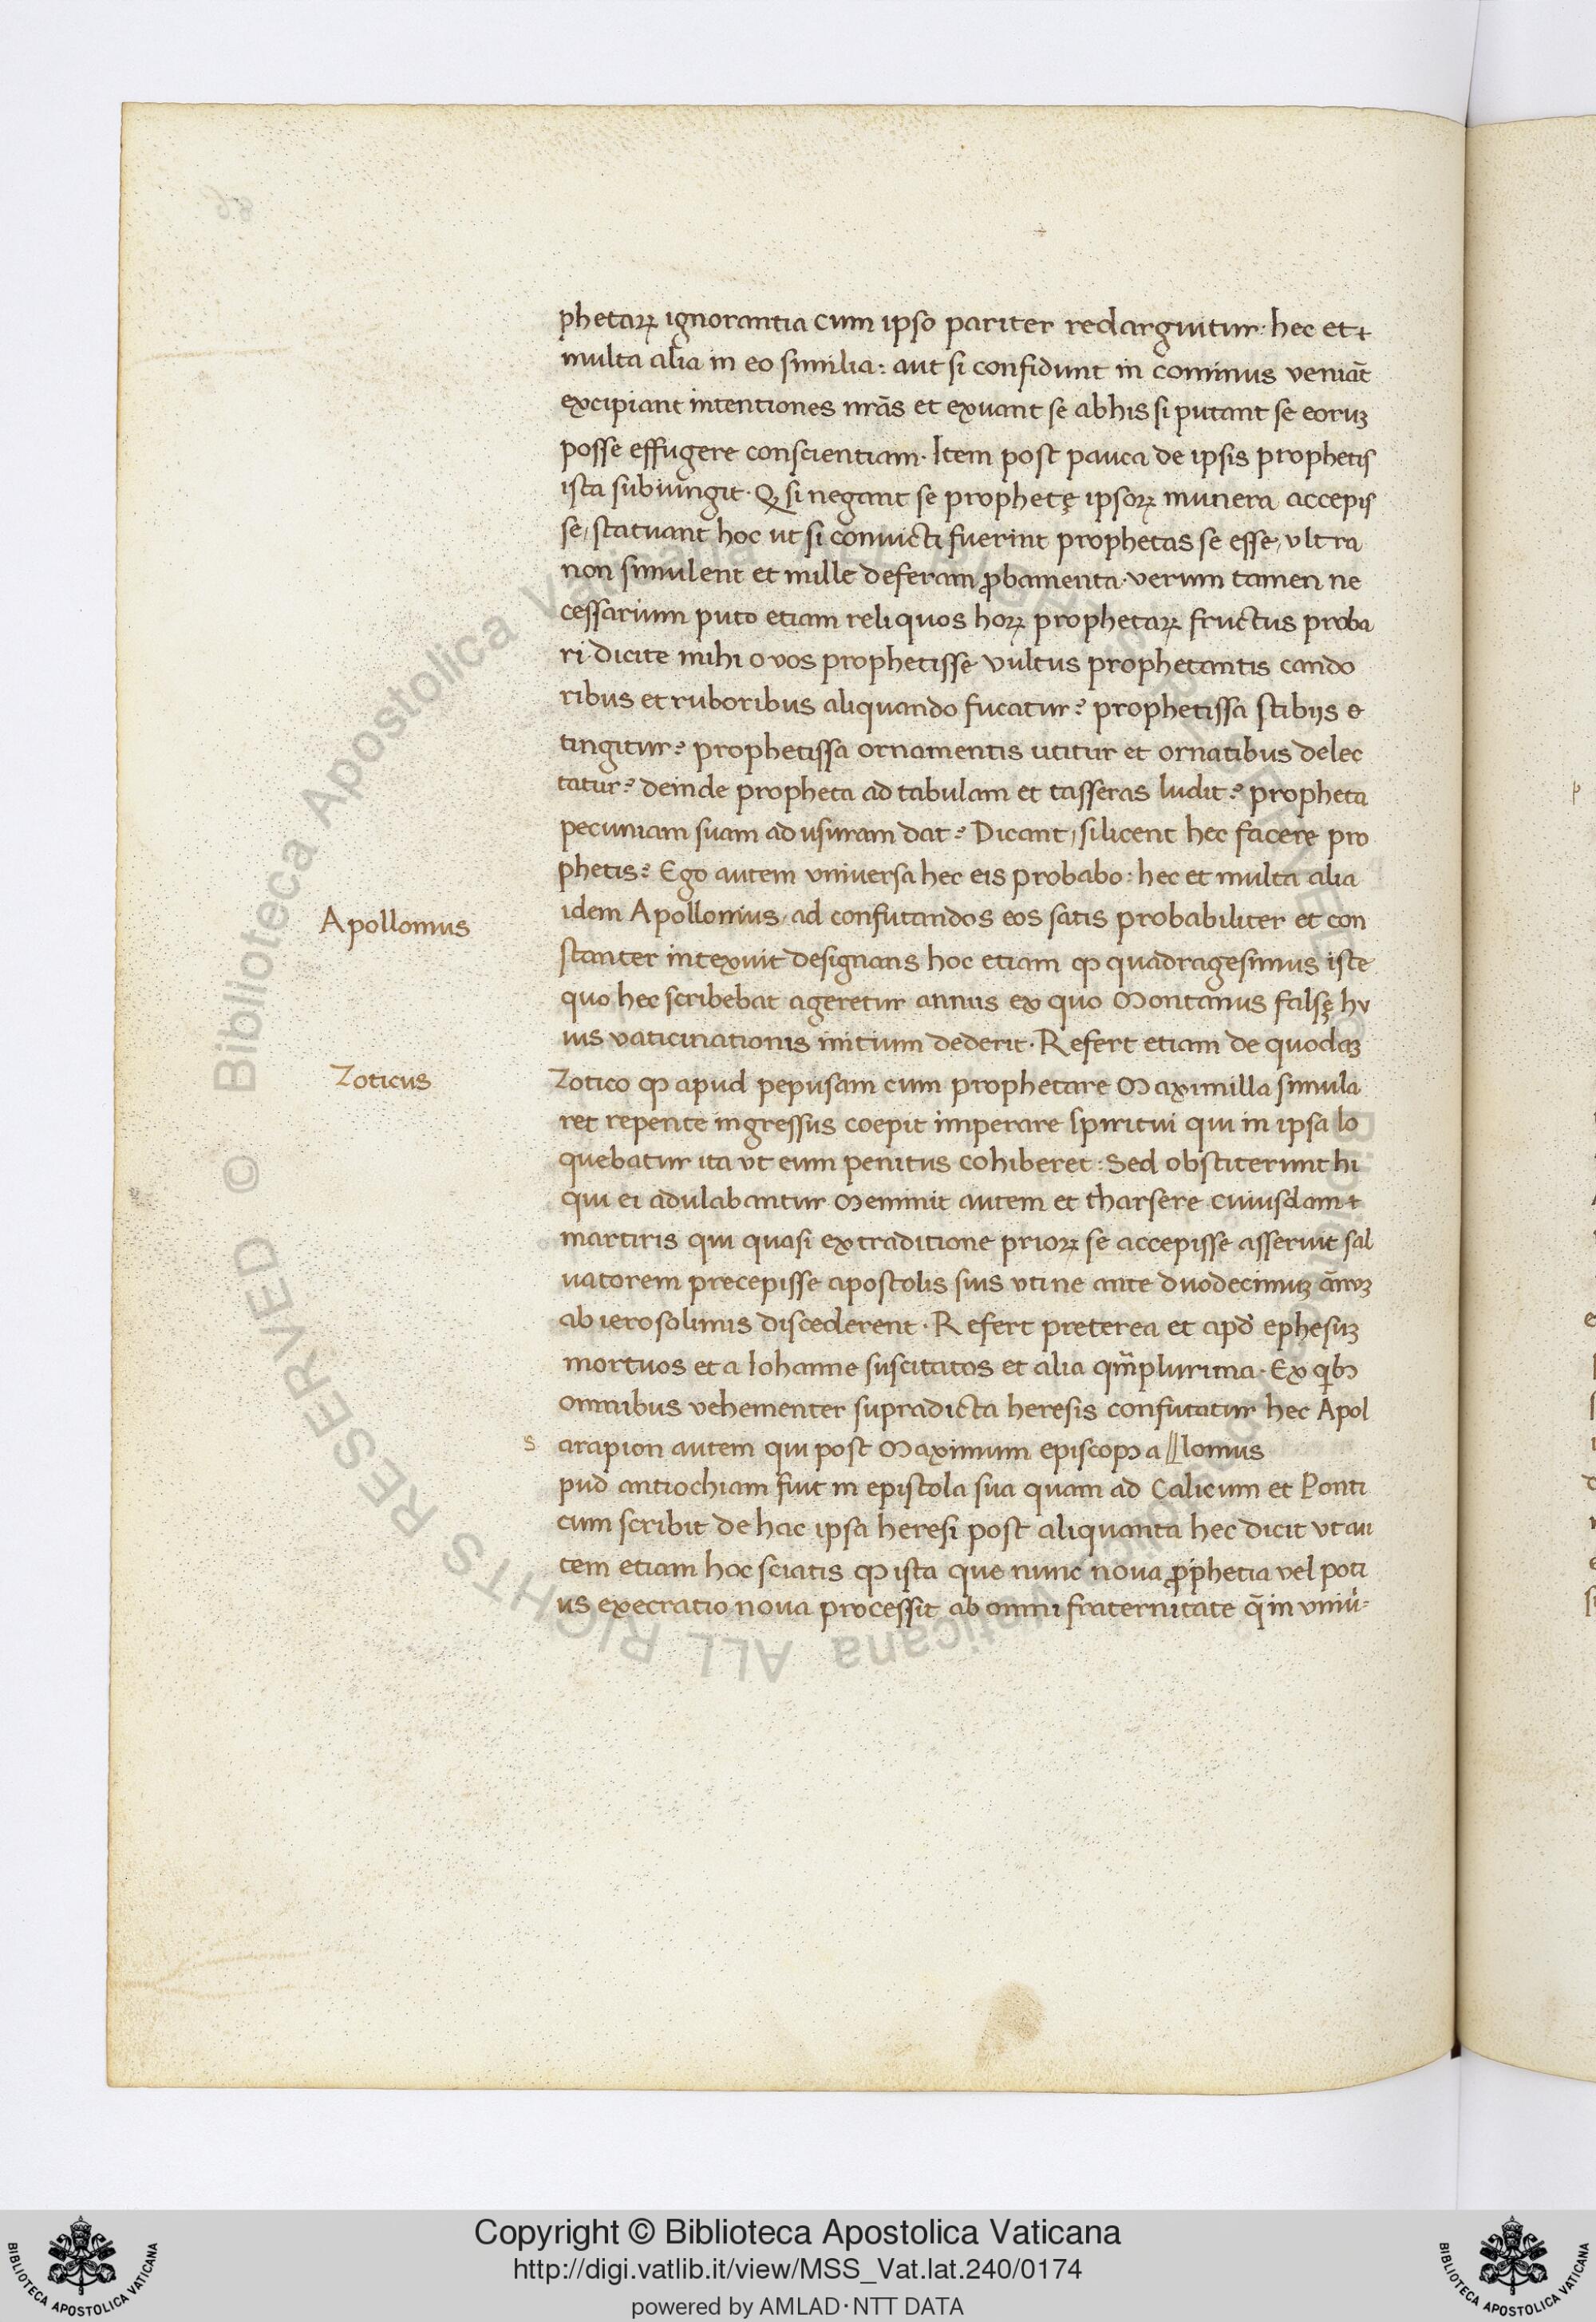 phetaꝝ ignorantia cum ipso pariter redarguitur· hec et
multa alia in eo similia: aut si confidunt in cominus veniāt
excipiant intentiones nr̄as et exuant se abhis si putant se eoruꝫ
posse effugere conscientiam· Item post pauca de ipsis prophetis
ista subiungit· Qꝫ si negant se prophetę ipsoꝝ munera accepis
se, statuant hoc ut si conuicti fuerint prophetas se esse, vltra
non simulent et mille deferam ꝓbamenta· verum tamen ne
cessarium puto etiam reliquos hoꝝ prophetaꝝ fructus proba
ri· dicite mihi o vos prophetisse vultus prophetantis cando
ribus et ruboribus aliquando fucatur? prophetissa stibijs
tingitur? prophetissa ornamentis utitur et ornatibus delec
tatur? deinde propheta ad tabulam et tasseras ludit? propheta
pecuniam suam ad usuram dat? Dicant, si licent hec facere pro
phetis? Ego autem vniuersa hec eis probabo: hec et multa alia
Apollonius
idem Apollonius, ad confutandos eos satis probabiliter et con
stanter intexuit designans hoc etiam ꝙ quadragesimus iste
quo hec scribebat ageretur annus ex quo Montanus falsę hu
ius vaticinationis initium dederit· Refert etiam de quodaꝫ
Zoticus
Zotico ꝙ apud pepusam cum prophetare Maximilla simula
ret repente ingressus coepit imperare spiritui qui in ipsa lo
quebatur ita vt eum penitus cohiberet: Sed obstiterunt hi
qui ei adulabantur Meminit autem et tharsere cuiusdam
martiris qui quasi ex traditione prioꝝ se accepisse asseruit sal
uatorem precepisse apostolis suis vti ne ante duodecimuꝫ ānuꝫ
ab ierosolimis discederent· Refert preterea et apd̓ ephesuꝫ
mortuos et a Iohanne suscitatos et alia qm̄plurima· Ex qͥbꝫ
omnibus vehementer supradicta heresis confutatur hec Apol
s arapion autem qui post Maximum episcopꝫ a //lonius
pud antiochiam fuit in epistola sua quam ad Calicum et Ponti
cum scribit de hac ipsa heresi post aliquanta hec dicit vt au
tem etiam hoc sciatis ꝙ ista que nunc noua ꝓphetia vel poti
us execratio noua processit ab omni fraternitate q̄ in vniu̓-
Copyright © Biblioteca Apostolica Vaticana
http://digi.vatlib.it/view/MSS_Vat.lat.240/0174
powered by AMLAD·NTT DATA
BIBLIOTECA APOSTOLICA VATICANA
BIBLIOTECA APOSTOLICA VATICANA
© Biblioteca Apostolica Vaticana ALL RIGHTS RESERVED